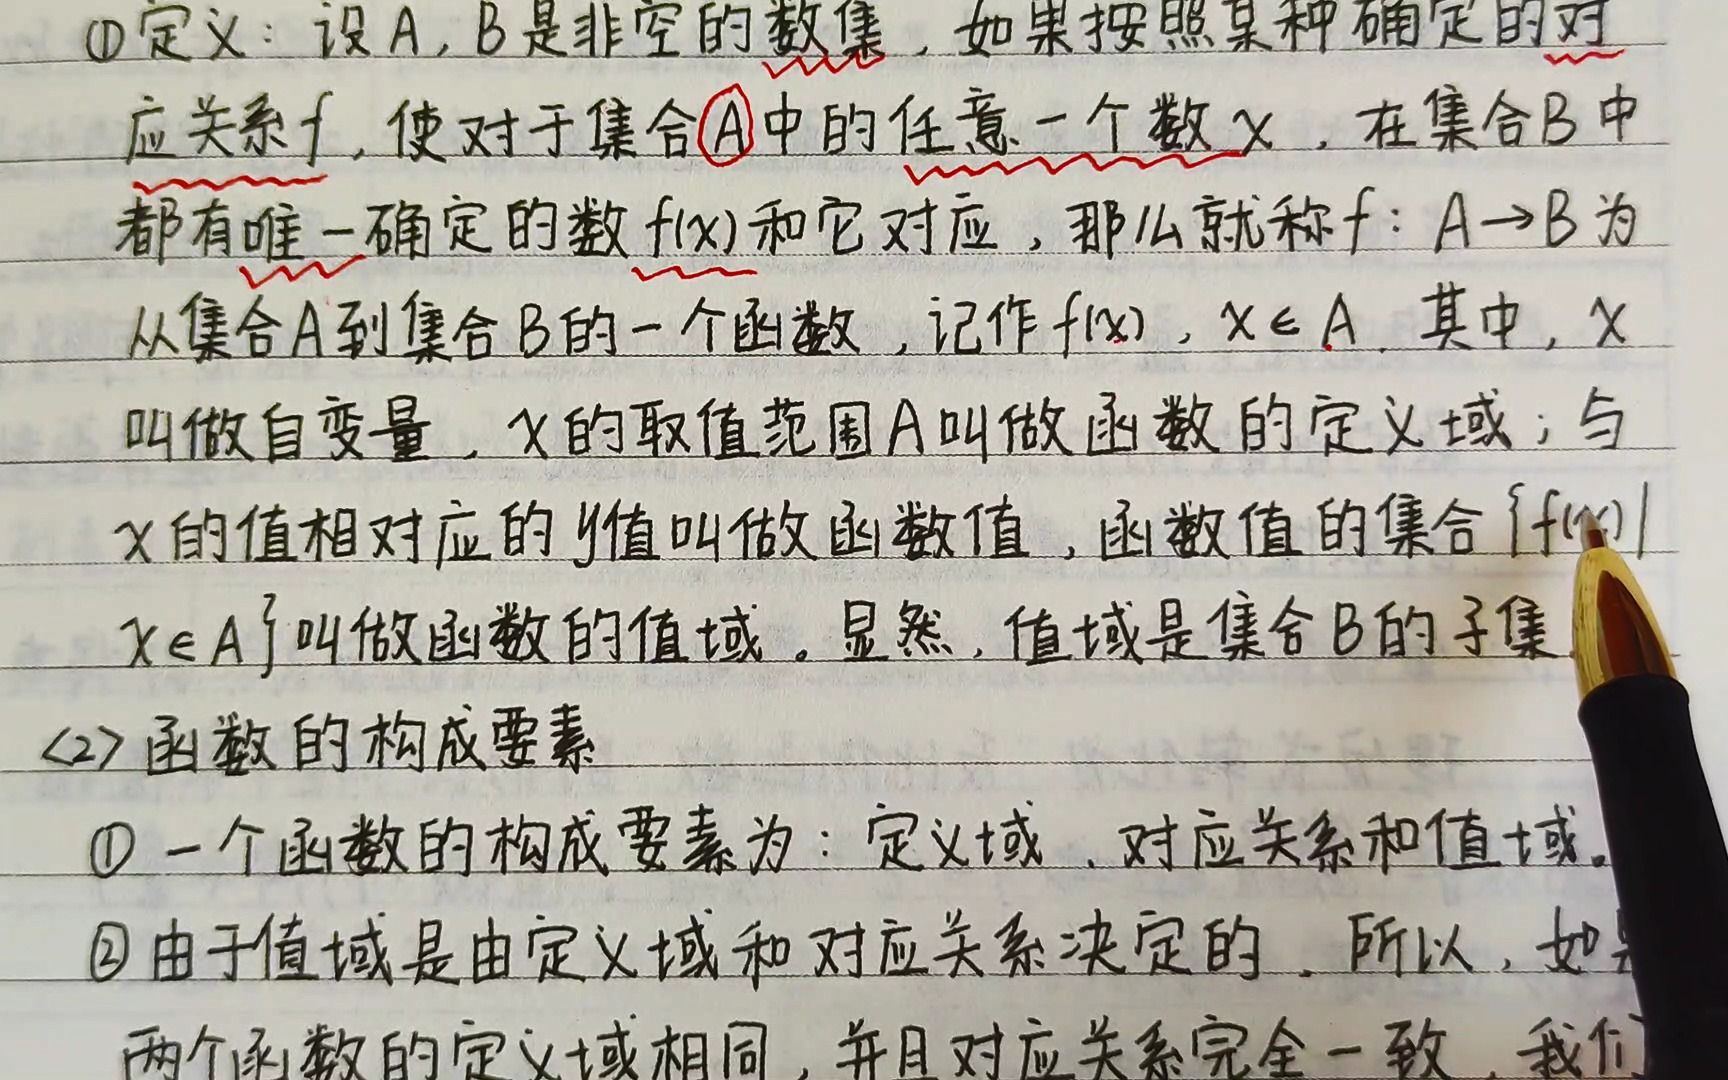 ①定义：设A，B是非空的数集，如果按照某种确定的对
应关系f，使对于集合A中的任意一个数x，在集合B中
都有唯一确定的数f(x)和它对应，那么就称f：A→B为
从集合A到集合B的一个函数，记作f(x)，x∈A．其中，x
叫做自变量，x的取值范围A叫做函数的定义域；与
x的值相对应的y值叫做函数值，函数值的集合{f(x)|
x∈A}叫做函数的值域。显然，值域是集合B的子集
<2>函数的构成要素
①一个函数的构成要素为：定义域、对应关系和值域。
②由于值域是由定义域和对应关系决定的．所以，如
两个函数的定义域相同，并且对应关系完全一致，我们